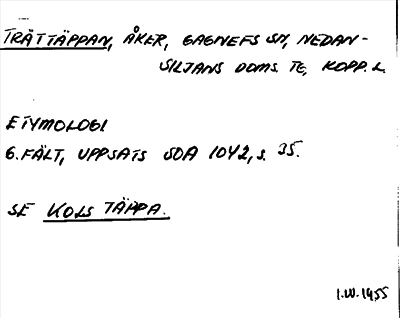 TRÄTTÄPPAN, ÅKER, GAGNEFS SN, NEDAN-
SILJANS DOMS. TG, KOPP. L.
ETYMOLOGI
G. FÄLT, UPPSATS SOA 1042, S. 35.
SE KOLS TÄPPA.
1955